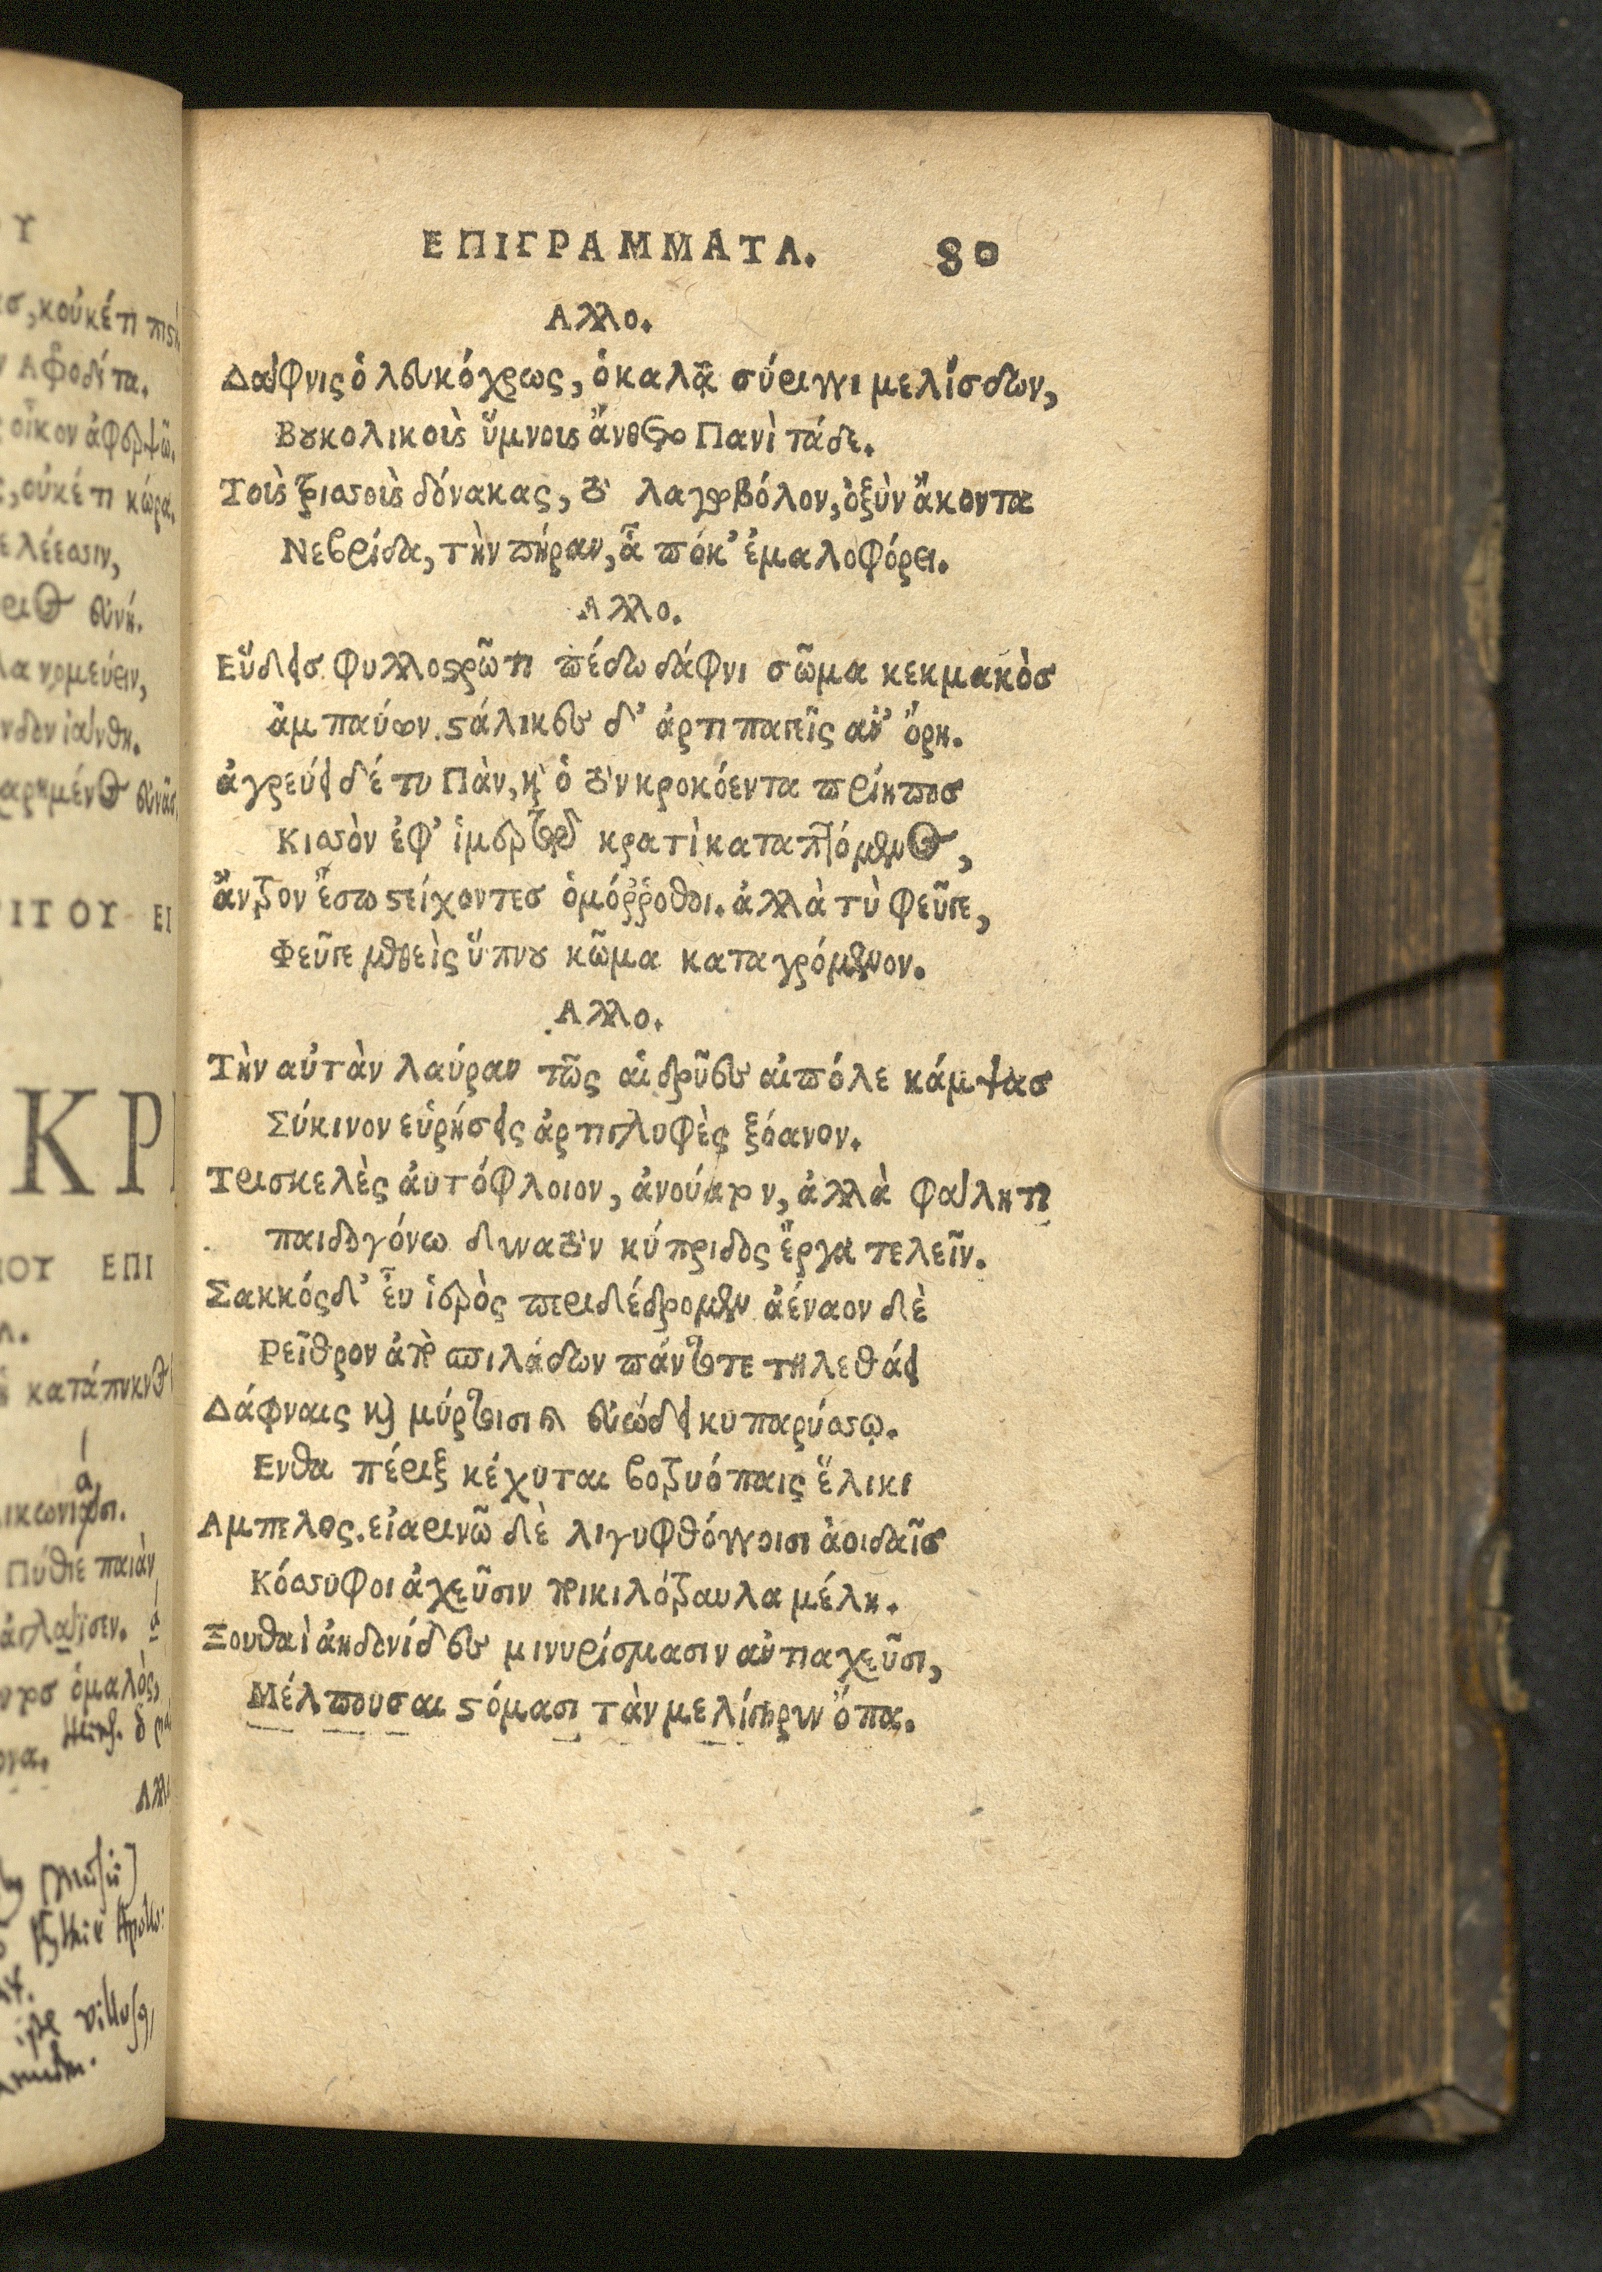 ΕΠΙΓΡΑΜΜΑΤΑ. 80
Αλλο.
Δάφνις ὁ λευκόχρως, ὁ καλᾷ σύριγγι μελίσδων,
Βουκολικοὺς ὕμνους ἄνθετο Πανὶ τάδε.
Τοὺς τρισσοὺς δόνακας, τὸ λαγωβόλον, ὀξὺν ἄκοντα
Νεβρίδα, τὴν πήραν, ᾇ πόκ' ἐμαλοφόρει.
Αλλο.
Εὕδεις φυλλοστρῶτι πέδω δάφνι σῶμα κεκμακὸς
ἀμπαύων. στάλικες δ' ἀρτιπαγεῖς ἀν' ὄρη.
ἀγρεύει δέ τυ Πὰν, κὴ ὁ τὸν κροκόεντα πρίηπος
Κισσὸν ἐφ' ἱμερτῷ κρατὶ καταπτόμενος,
ἄντρον ἔσω στείχοντες ὁμόῤῥοθοι. ἀλλὰ τὺ φεῦγε,
Φεῦγε μεθεὶς ὕπνου κῶμα καταγρόμενον.
Αλλο.
Τὴν αὐτὰν λαύραν τῶς αἱ δρῦες αἰπόλε κάμψας
Σύκινον εὑρήσεις ἀρτιγλυφὲς ξόανον.
Τρισκελὲς αὐτόφλοιον, ἀνούατον, ἀλλὰ φάλητι
παιδογόνω δυνατὸν κύπριδος ἔργα τελεῖν.
Σακκός δ' εὖ ἱερὸς περιδέδρομεν ἀέναον δὲ
Ρεῖθρον ἀπὸ σπιλάδων πάντοτε τηλεθάει
Δάφναις καὶ μύρτοισι καὶ εὐώδει κυπαρύσσῳ.
Ενθα πέριξ κέχυται βοτρυόπαις ἕλικι
Αμπελος. εἰαρινῶ δὲ λιγυφθόγγοισι ἀοιδαῖς
Κόσσυφοι ἀχεῦσιν ποικιλότραυλα μέλη.
Ξουθαὶ ἀηδονίδες μινυρίσμασιν ἀντιαχεῦσι,
Μέλπουσαι στόμασι τὰν μελίγηρυν ὄπα.